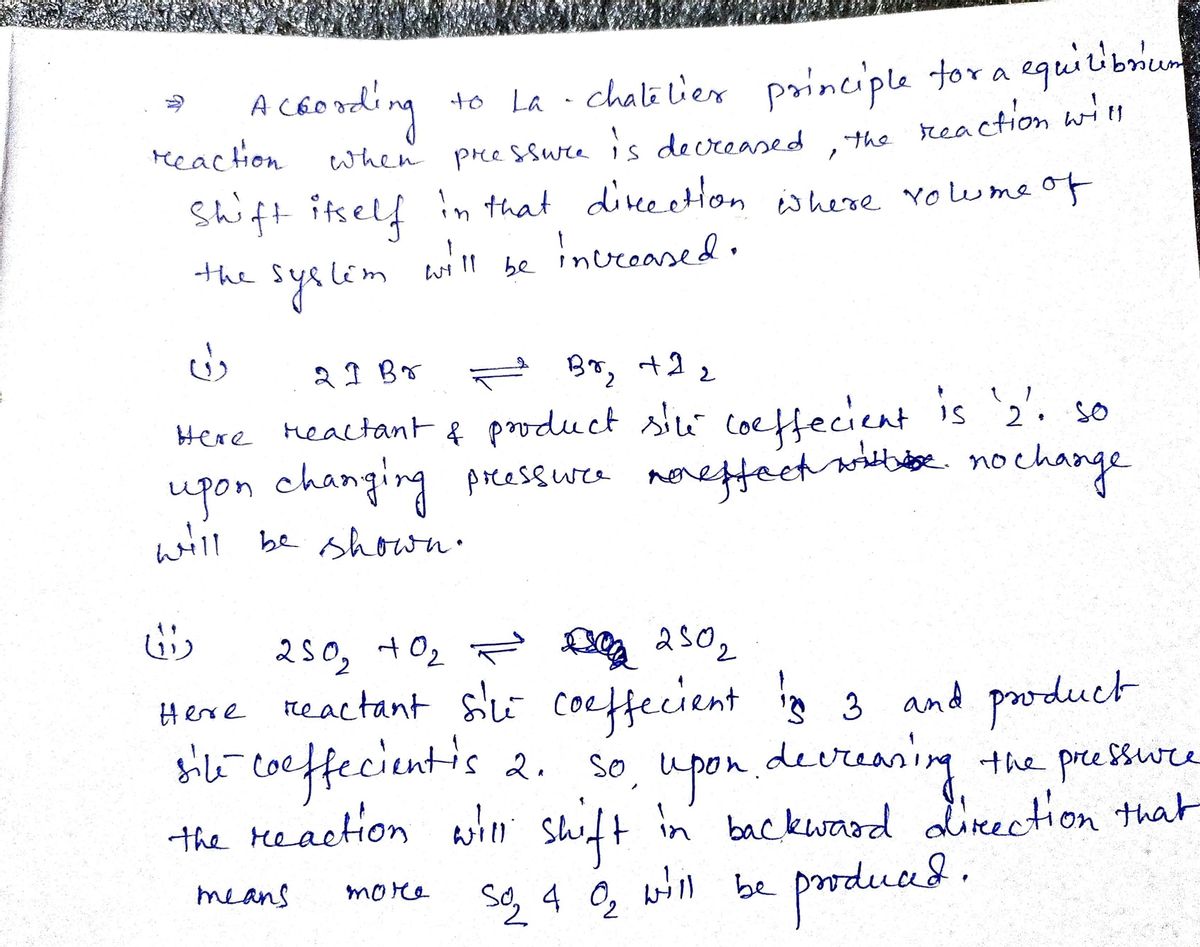 ⇒ According to La-chatelier principle for a equilibrium
reaction when pressure is decreased, the reaction will
shift itself in that direction where volume of
the system will be increased.
(i) 2IBr ⇌ Br₂ + I₂
Here reactant & product site coeffecient is '2'. so
upon changing pressure no effect will be. no change
will be shown.
(ii) 2SO₂ + O₂ ⇌ 2SO₂
Here reactant site coeffecient is 3 and product
site coeffecient is 2. so, upon decreasing the pressure
the reaction will shift in backward direction that
means more SO₂ & O₂ will be produced.